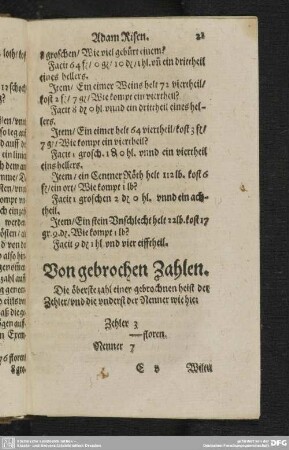 Adam Risen. 21
8 groschen/ Wie viel gebürt einem?
Facit 64 fl/ 0 gr/ 10 ₰ 1 hl. vn̄ ein drittheil
eines hellers.
Item/ Ein eimer Weins helt 72 viertheil/
kost 2 fl/ 7 gr/ Wie kompt ein viertheil?
Facit 8 ₰ 0 hl vnnd ein drittheil eines hel-
lers.
Item/ Ein eimer helt 64 viertheil/ kost 3 fl/
7 gr/ Wie kompt ein viertheil?
Facit 1 grosch. 1 ₰ 0 hl. vnnd ein viertheil
eins hellers.
Item/ ein Centner Röth helt 112 lb. kost 6
fl/ ein ort/ Wie kompt 1 lb?
Facit 1 groschen 2 ₰ 0 hl. vnnd ein ach-
theil.
Item/ Ein stein Vnschlecht helt 22 lb. kost 17
gr. 9 ₰. Wie kompt 1 lb?
Facit 9 ₰ 1 hl vnd vier eilfftheil.
Von gebrochen Zahlen.
Die öberste zahl einer gebrochnen heist der
Zehler/ vnd die vnderst der Nenner wie hier
Zehler 3
floren.
Nenner 7
E v